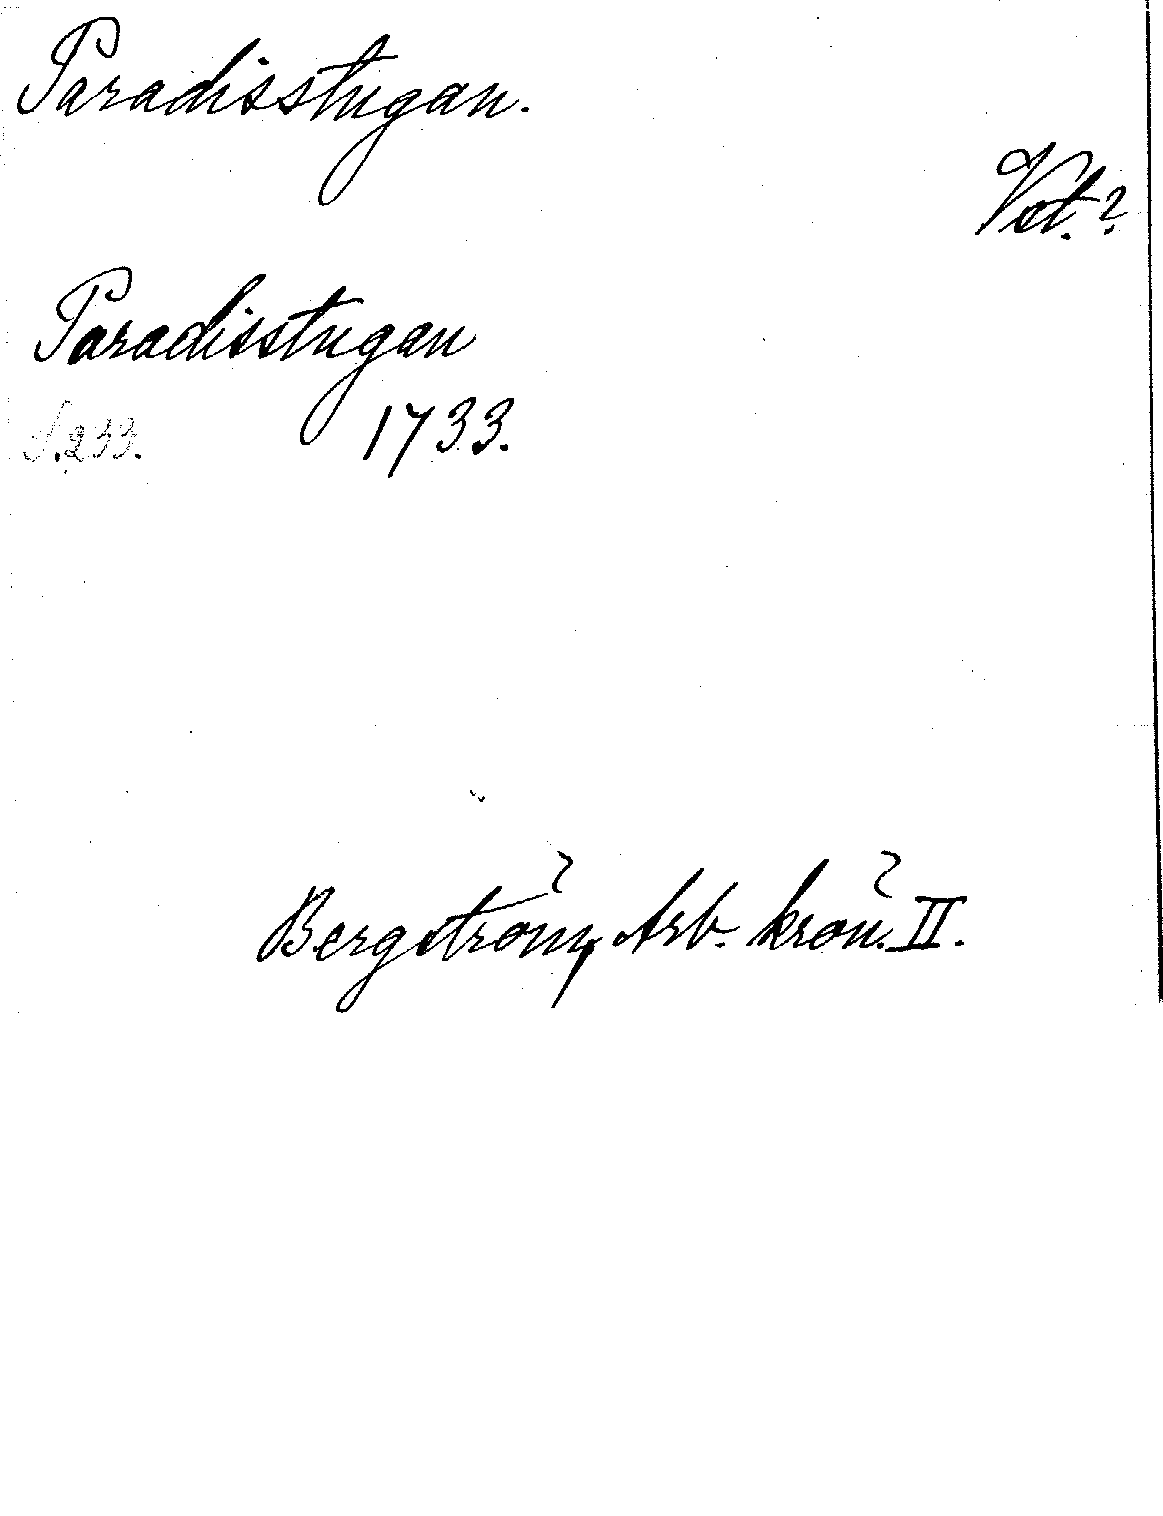 Paradisstugan.
Vst.?
Paradisstugan
S.233. 1733.
Bergström, Arb. krön. II.